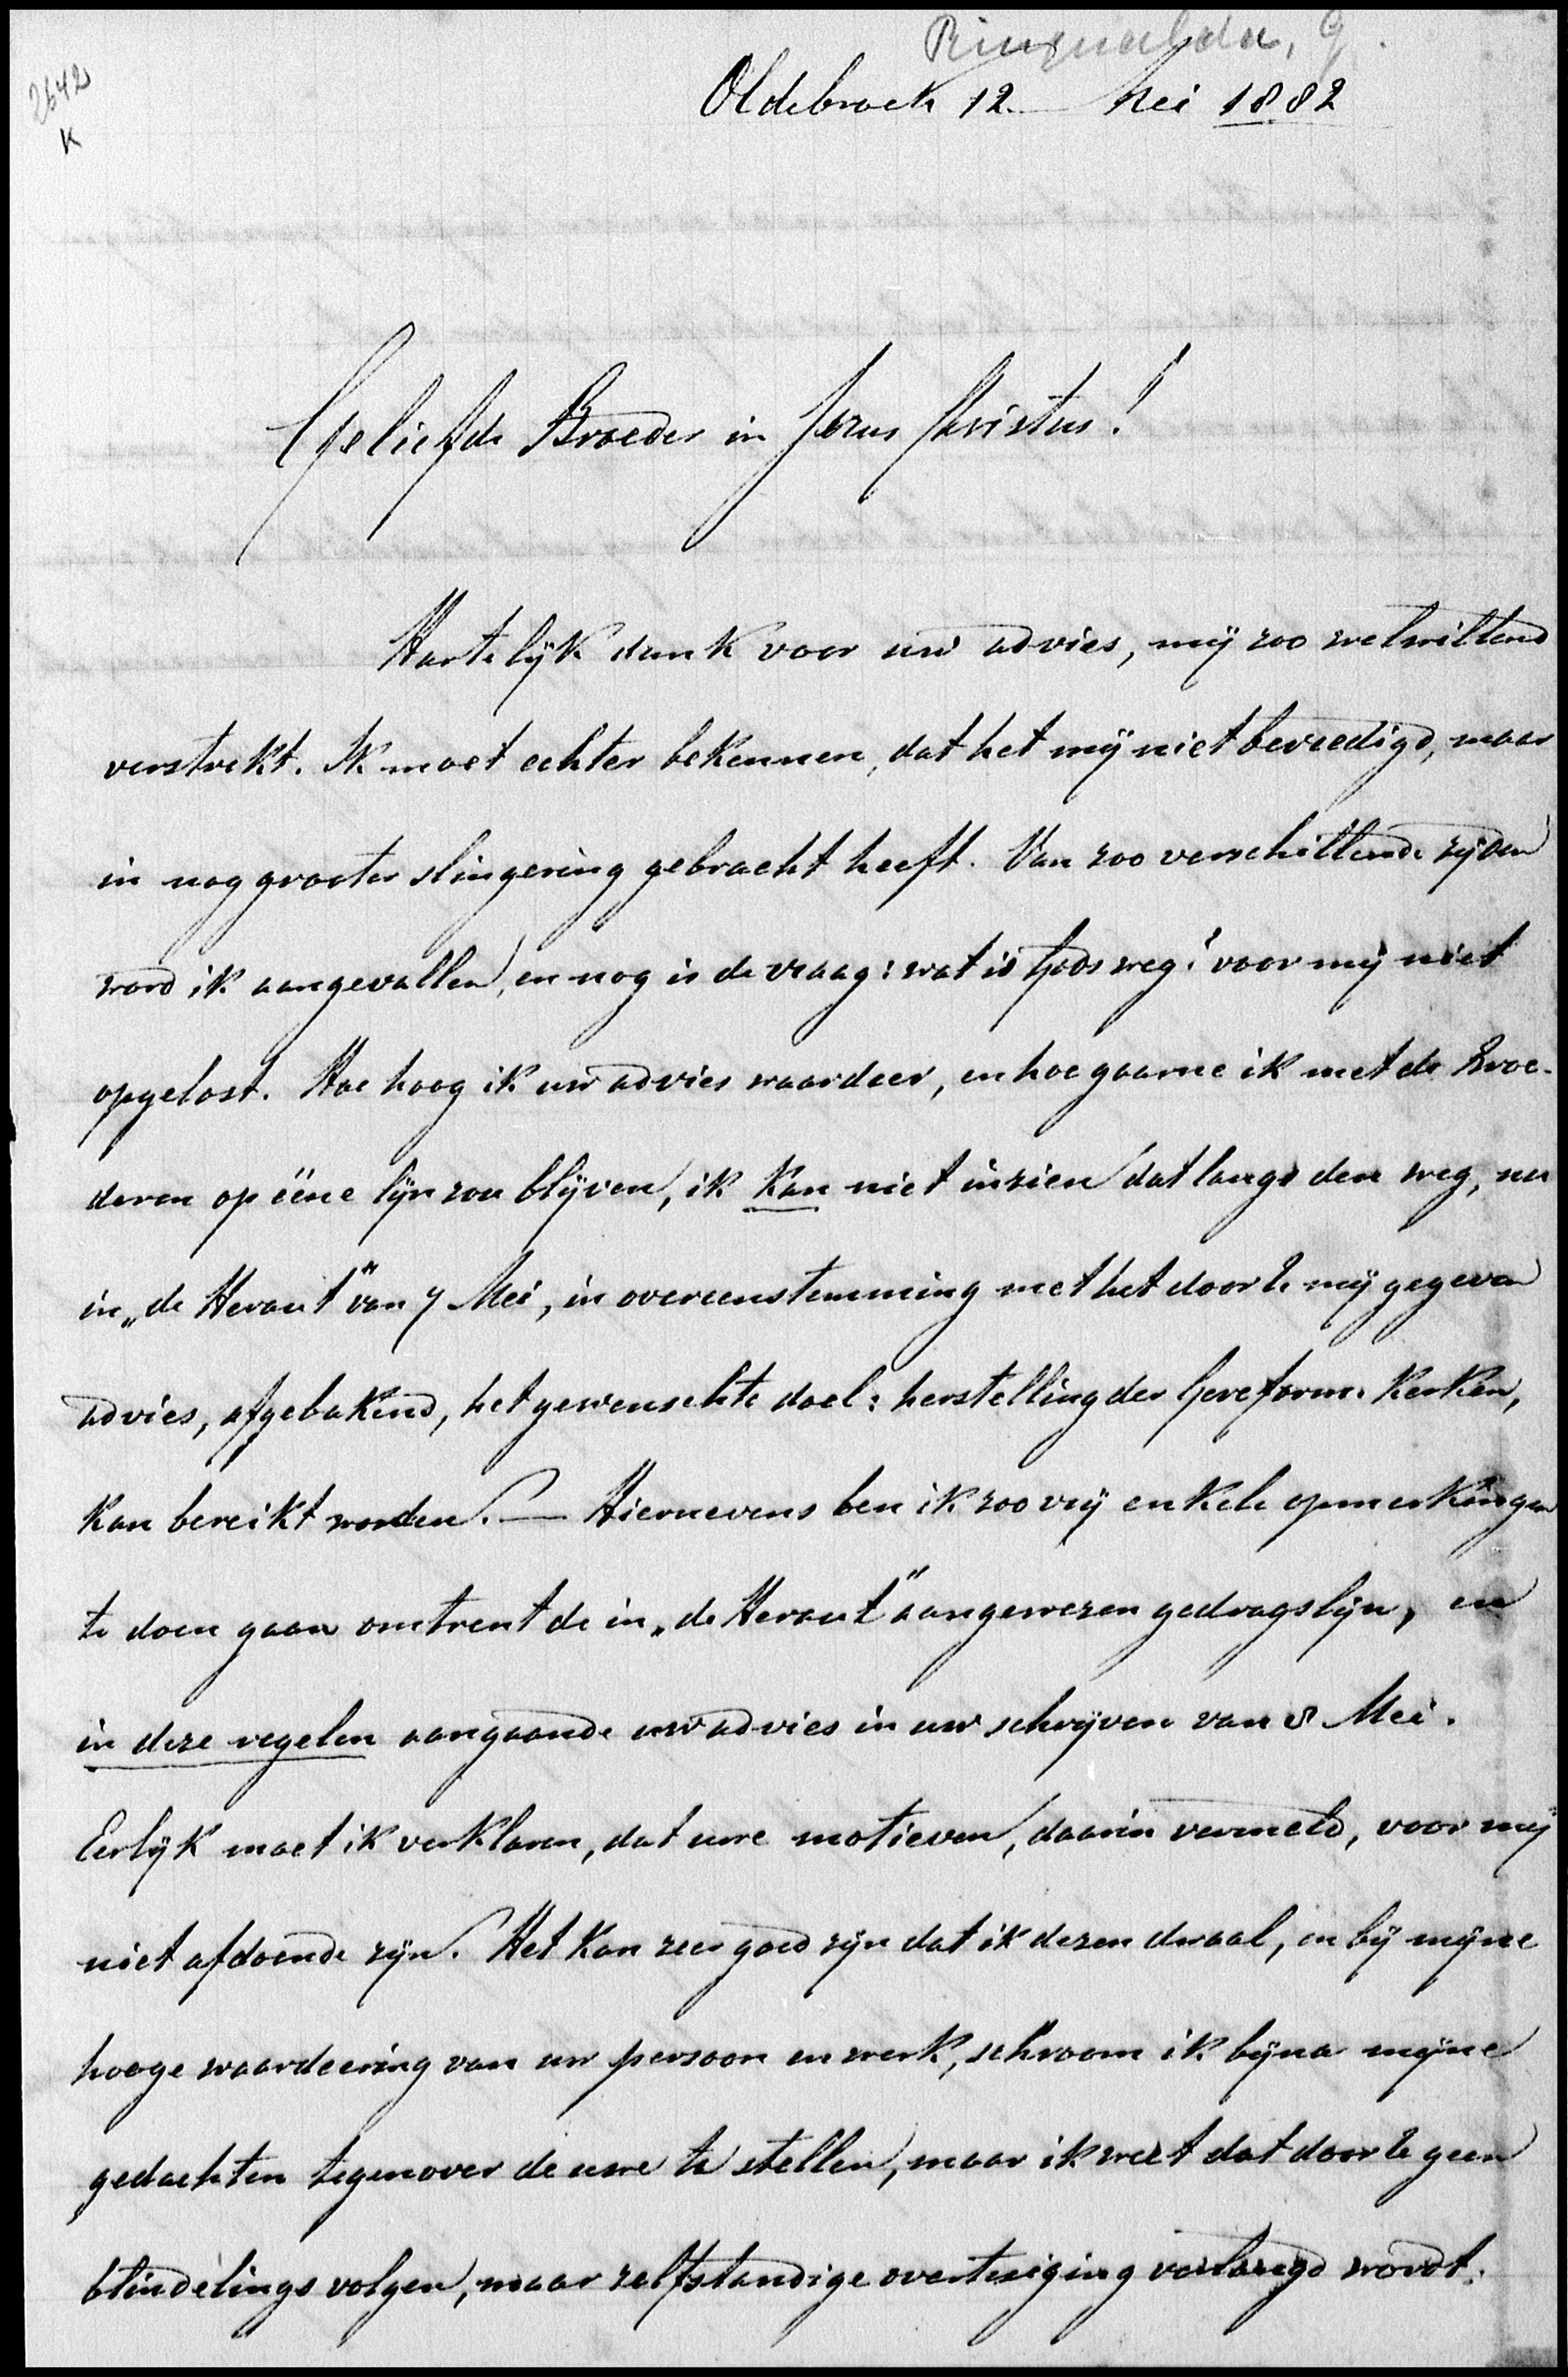 Ringnalda, G.
2642
K
Oldebroek 12 Mei 1882
Geliefde Broeder in Jezus Christus!
Hartelijk dank voor uw advies, mij zoo welwillend
verstrekt. Ik moet echter bekennen, dat het mij niet bevredigd, maar
in nog grooter slingering gebracht heeft. Van zoo verschillende zijden
word ik aangevallen, en nog is de vraag: wat is Gods weg? voor mij niet
opgelost. Hoe hoog ik uw advies waardeer, en hoe gaarne ik met de Broe-
deren op ééne lijn zou blijven, ik kan niet inzien dat langs den weg, nu
in „de Heraut" van 7 Mei, in overeenstemming met het door U mij gegeven
advies, afgebakend, het gewenschte doel: herstelling der Gereform. Kerken,
kan bereikt worden. — Hiernevens ben ik zoo vrij enkele opmerkingen
te doen gaan omtrent de in „de Heraut" aangewezen gedragslijn, en
in deze regelen aangaande uw advies in uw schrijven van 8 Mei.
Eerlijk moet ik verklaren, dat uwe motieven, daarin vermeld, voor mij
niet afdoende zijn. Het kan zeer goed zijn dat ik dezen dwaal, en bij mijne
hooge waardeering van uw persoon en werk, schroom ik bijna mijne
gedachten tegenover de uwe te stellen, maar ik weet dat door U geen
blindelings volgen, maar zelfstandige overtuiging verlangd wordt.